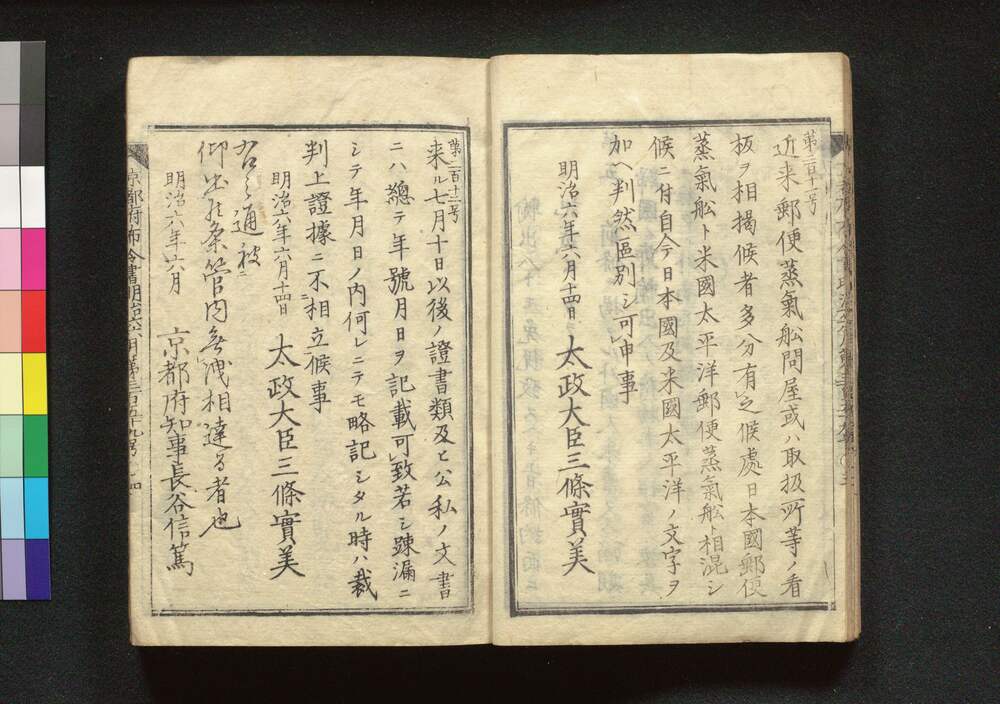 第二百十一号
近来郵便蒸氣舩問屋或ハ取扱所等ノ看
板ヲ相掲候者多分有之候處日本國郵便
蒸氣舩ト米國太平洋郵便蒸氣舩ト相混シ
候ニ付自今日本國及米國太平洋ノ文字ヲ
加ヘ判然區別シ可申事
明治六年六月十四日
太政大臣三條實美
第二百十二号
来ル七月十日以後ノ證書類及ヒ公私ノ文書
ニハ總テ年號月日ヲ記載可致若シ踈漏ニ
シテ年月日ノ内何レニテモ略記シタル時ハ裁
判上證據ニ不相立候事
明治六年六月十四日
太政大臣三條實美
右之通被
仰出候条管内無洩相達る者也
明治六年六月
京都府知事長谷信篤
京都府布令書明治六年六月第二百五十九号
四